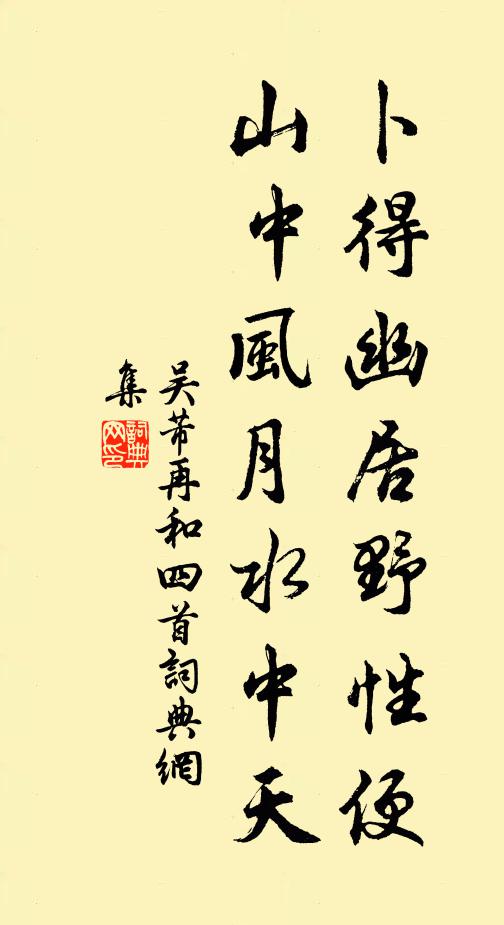 卜得幽居野性便
山中風月水中天
吴芾再和四首詞典網
集
詞典
网印